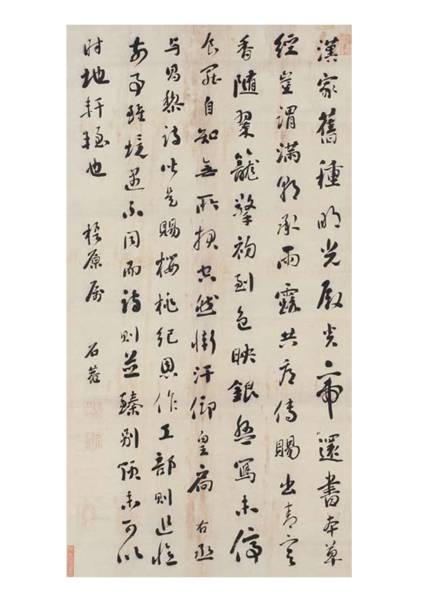 漢家舊種明光殿炎帝還書本草
經豈謂滿朝承雨露共看傳賜出青冥
香隨翠籠擎初到色映銀盤寫未停
食罷自知無所報空然慚汗仰皇扃右丞
与昌黎詩皆是賜櫻桃紀恩作工部則追憶
前事雖境遇不同而詩則並臻未可以
時地軒輊也 原屬 石菴